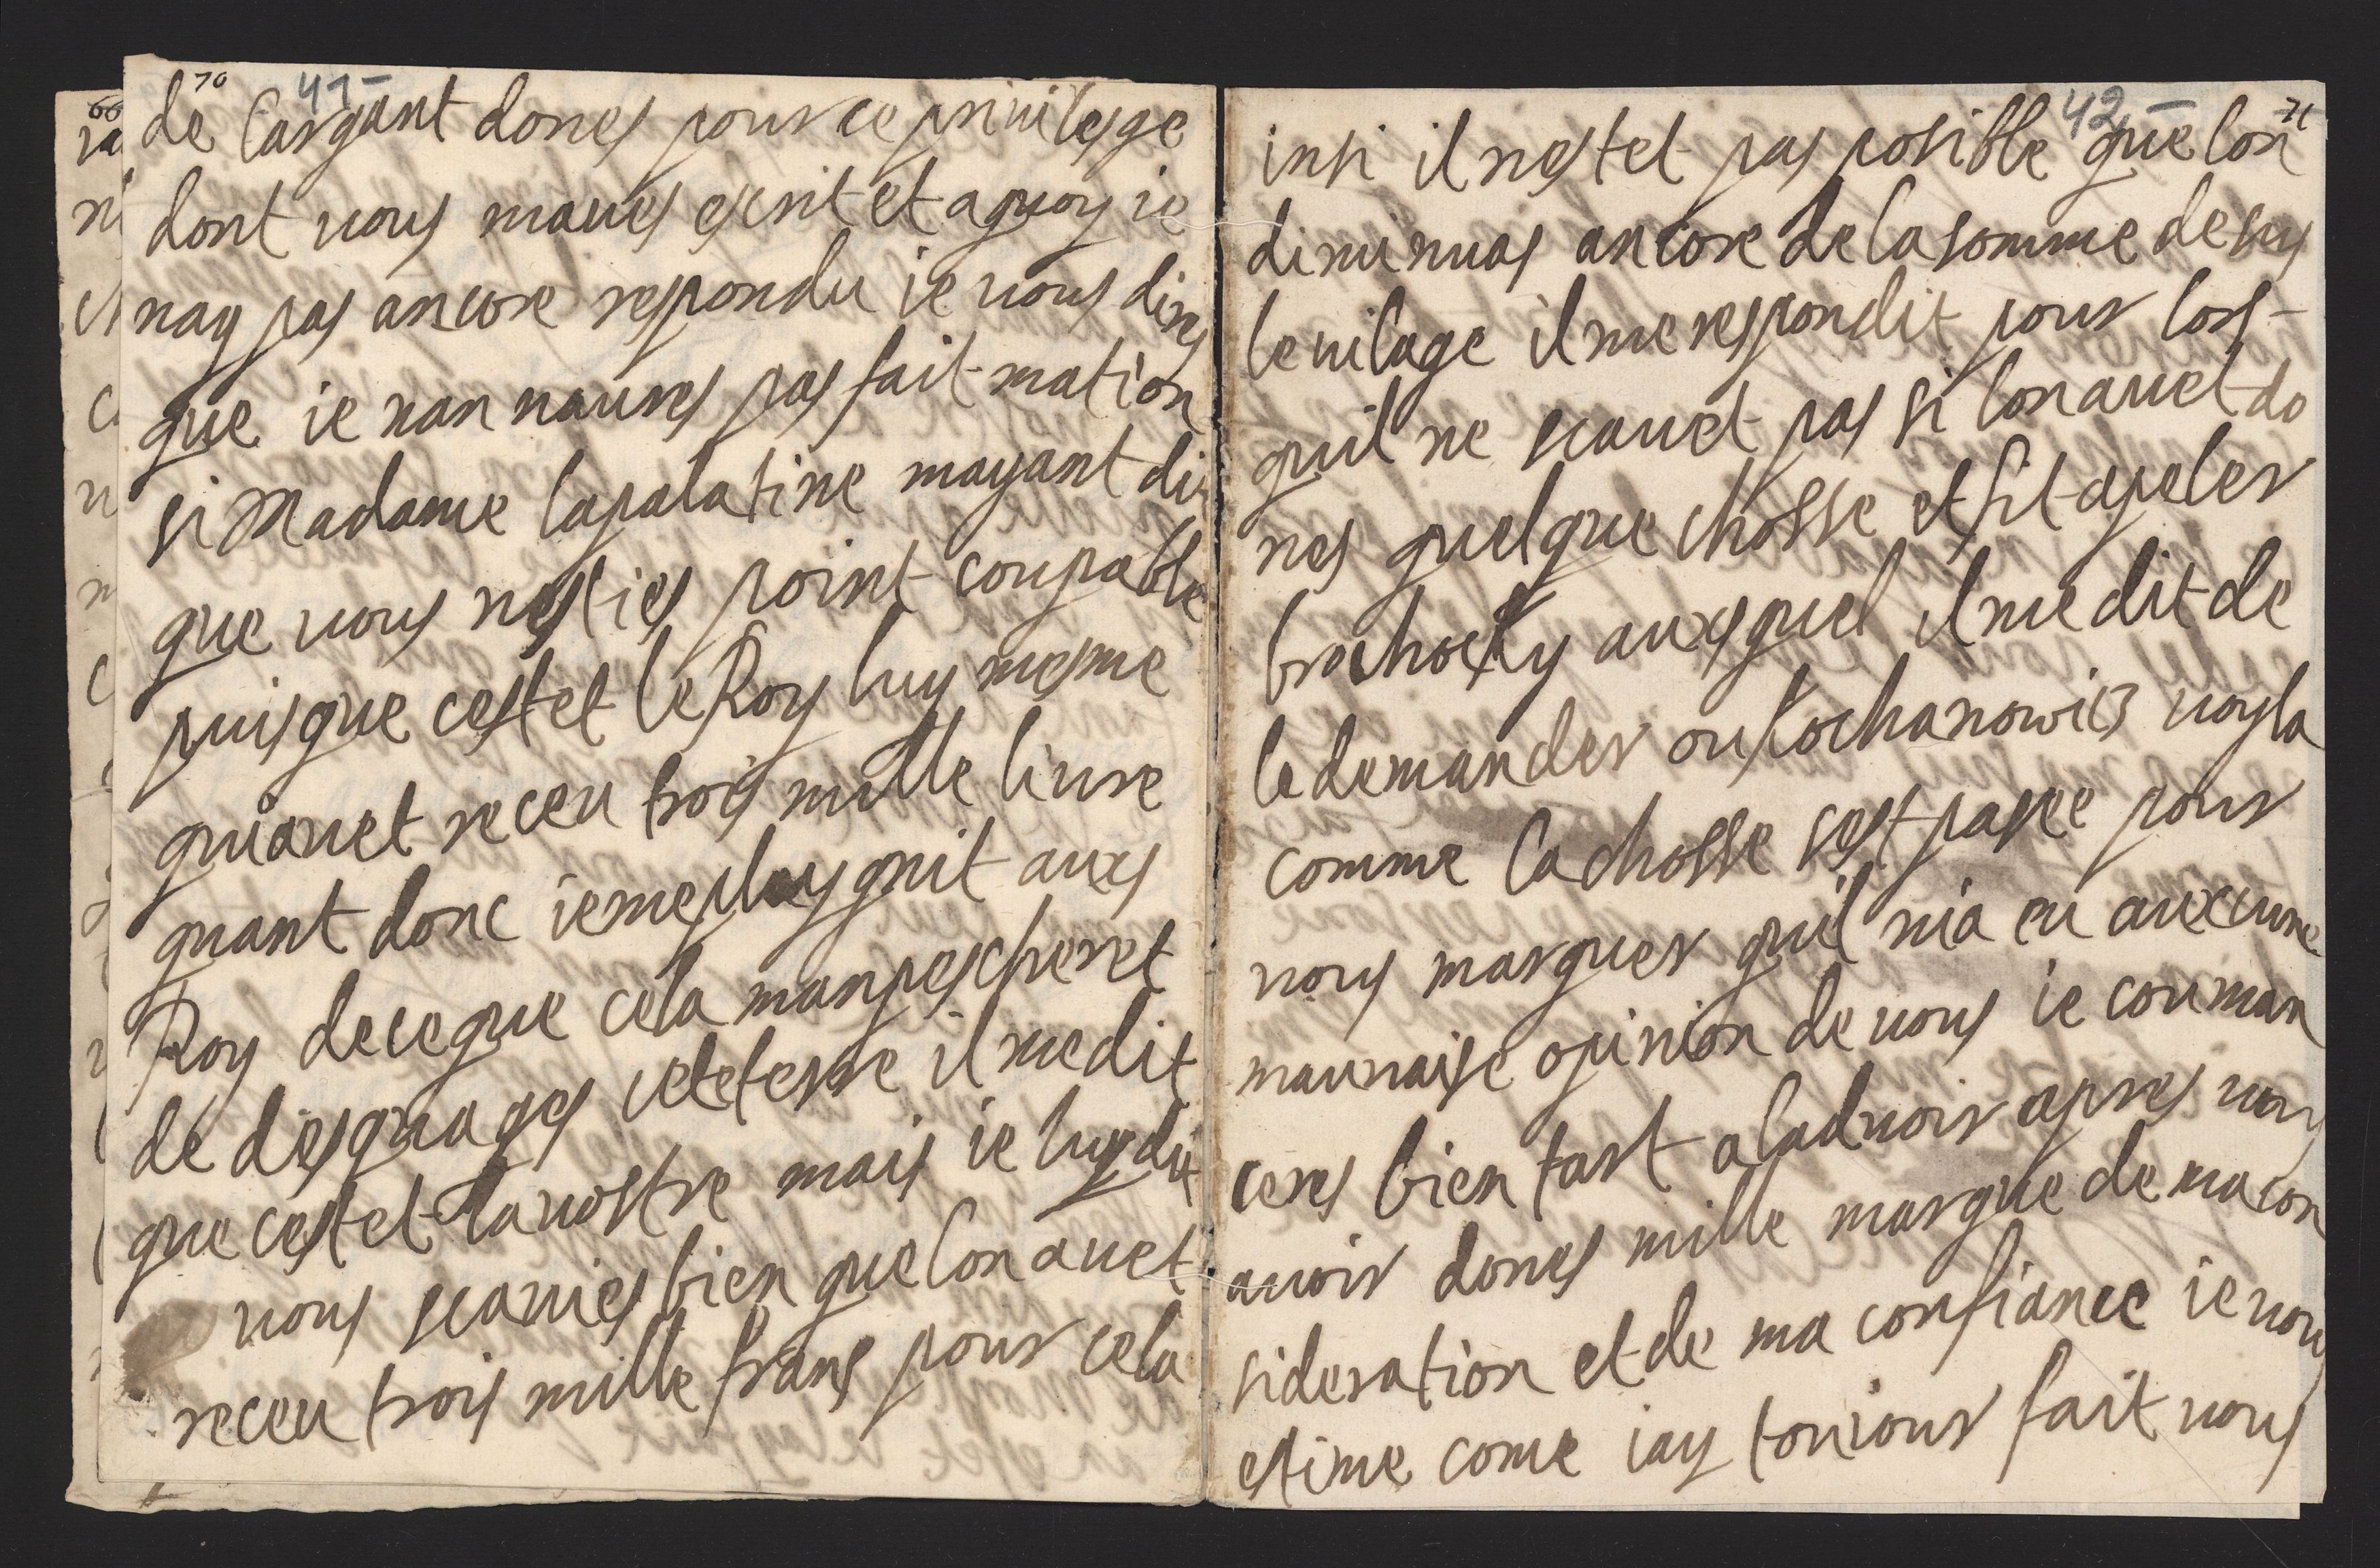 70 41-
de largant dones pour ce priuilesge
dont vous maues escrit et a quoy ie
nay pas ancore respondu ie vous dires
que ie nan naures pas fait mation
si Madame lapalatine mayant dit
que vous nesties point coupable
puisque cestet le Roy luy mesme
qui auet receu trois mille liure
quant donc ie me pleygnit aux
Roy de ce que cela manpescheret
de desguages cete terre il me dit
que cestet la vostre mais ie luy dit
vous scauies bien que lon auet
receu trois mille frans pour cela
42- 71
insi il nestet pas posible que lon
diminuas ancore de la somme de sus
le vilage il me respondit pour lors
quil ne scauet pas si lon auet do
nes quelque chosse et fit apeler
brochocky auxquel il me dit de
le demander ou kochanowicz voyla
comme la chosse sest pasee pour
vous marquer quil nia eu auxcune
mauuaise opinion de vous ie conman
ceres bien tart a laduoir apres vous
auoir dones mille marque de ma con
sideration et de ma confiance ie vous
estime come iay touiour fait vous